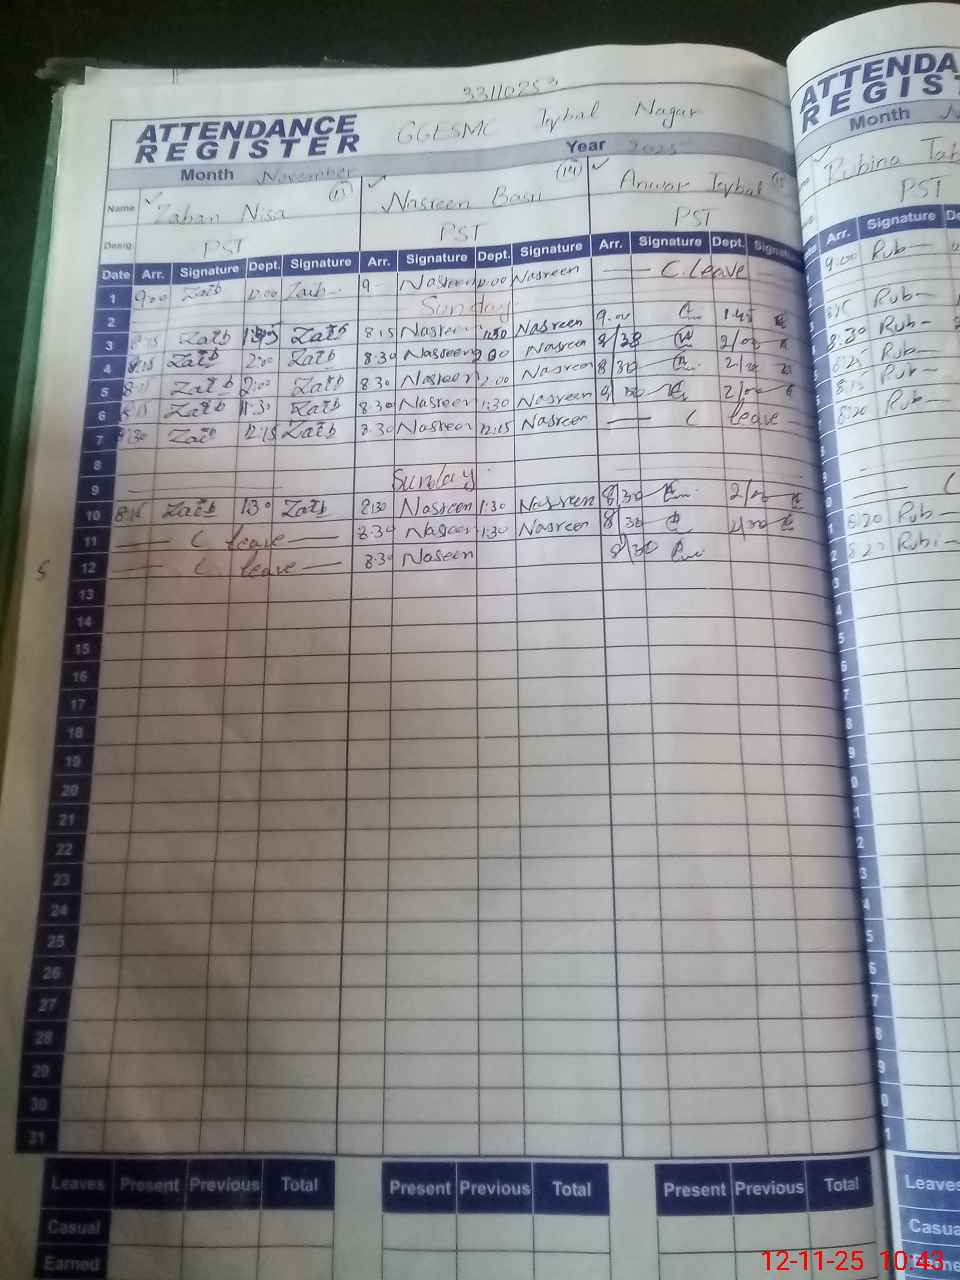 33110253
ATTENDANCE REGISTER GGESMC Iqbal Nagar
Month November Year 2025
Name Zaban Nisa Nasreen Basri (14) Anwar Iqbal
Desig. PST PST PST
Date Arr. Signature Dept. Signature Arr. Signature Dept. Signature Arr. Signature Dept. Signature
1 9:00 Zaib 12:00 Zaib 9 Nasreen 12:00 Nasreen C. Leave
2 Sunday
3 8:15 Zaib Zaib 8:15 Nasreen Nasreen 9.00 1:45
4 8:15 Zaib 2:00 Zaib 8:30 Nasreen 2:00 Nasreen 8/30 2/00
5 Zaib 2:00 Zaib 8:30 Nasreen 2:00 Nasreen 8/30 2/00
6 8:15 Zaib 1:30 Zaib 8:30 Nasreen 1:30 Nasreen 2/00
7 8:30 Zaib 12:15 Zaib 8:30 Nasreen 12:15 Nasreen C leave
8
9 Sunday
10 8:15 Zaib 1:30 Zaib 8:30 Nasreen 1:30 Nasreen 8/30 2/00
11 C leave 8:30 Nasreen 1:30 Nasreen 8/30
12 C leave 8:30 Nasreen 8/30
13
14
15
16
17
18
19
20
21
22
23
24
25
26
27
28
29
30
31
Leaves Present Previous Total Present Previous Total Present Previous Total
Casual
Earned
ATTENDA
REGIST
Month
Rubina Tah
PST
Arr. Signature De
9.00 Rub
Rub
8:30 Rub
8:25 Rub
8:15 Rub
8:20 Rub
8:20 Rub
8:20 Rubi
Leaves
Casua
12-11-25 10:43